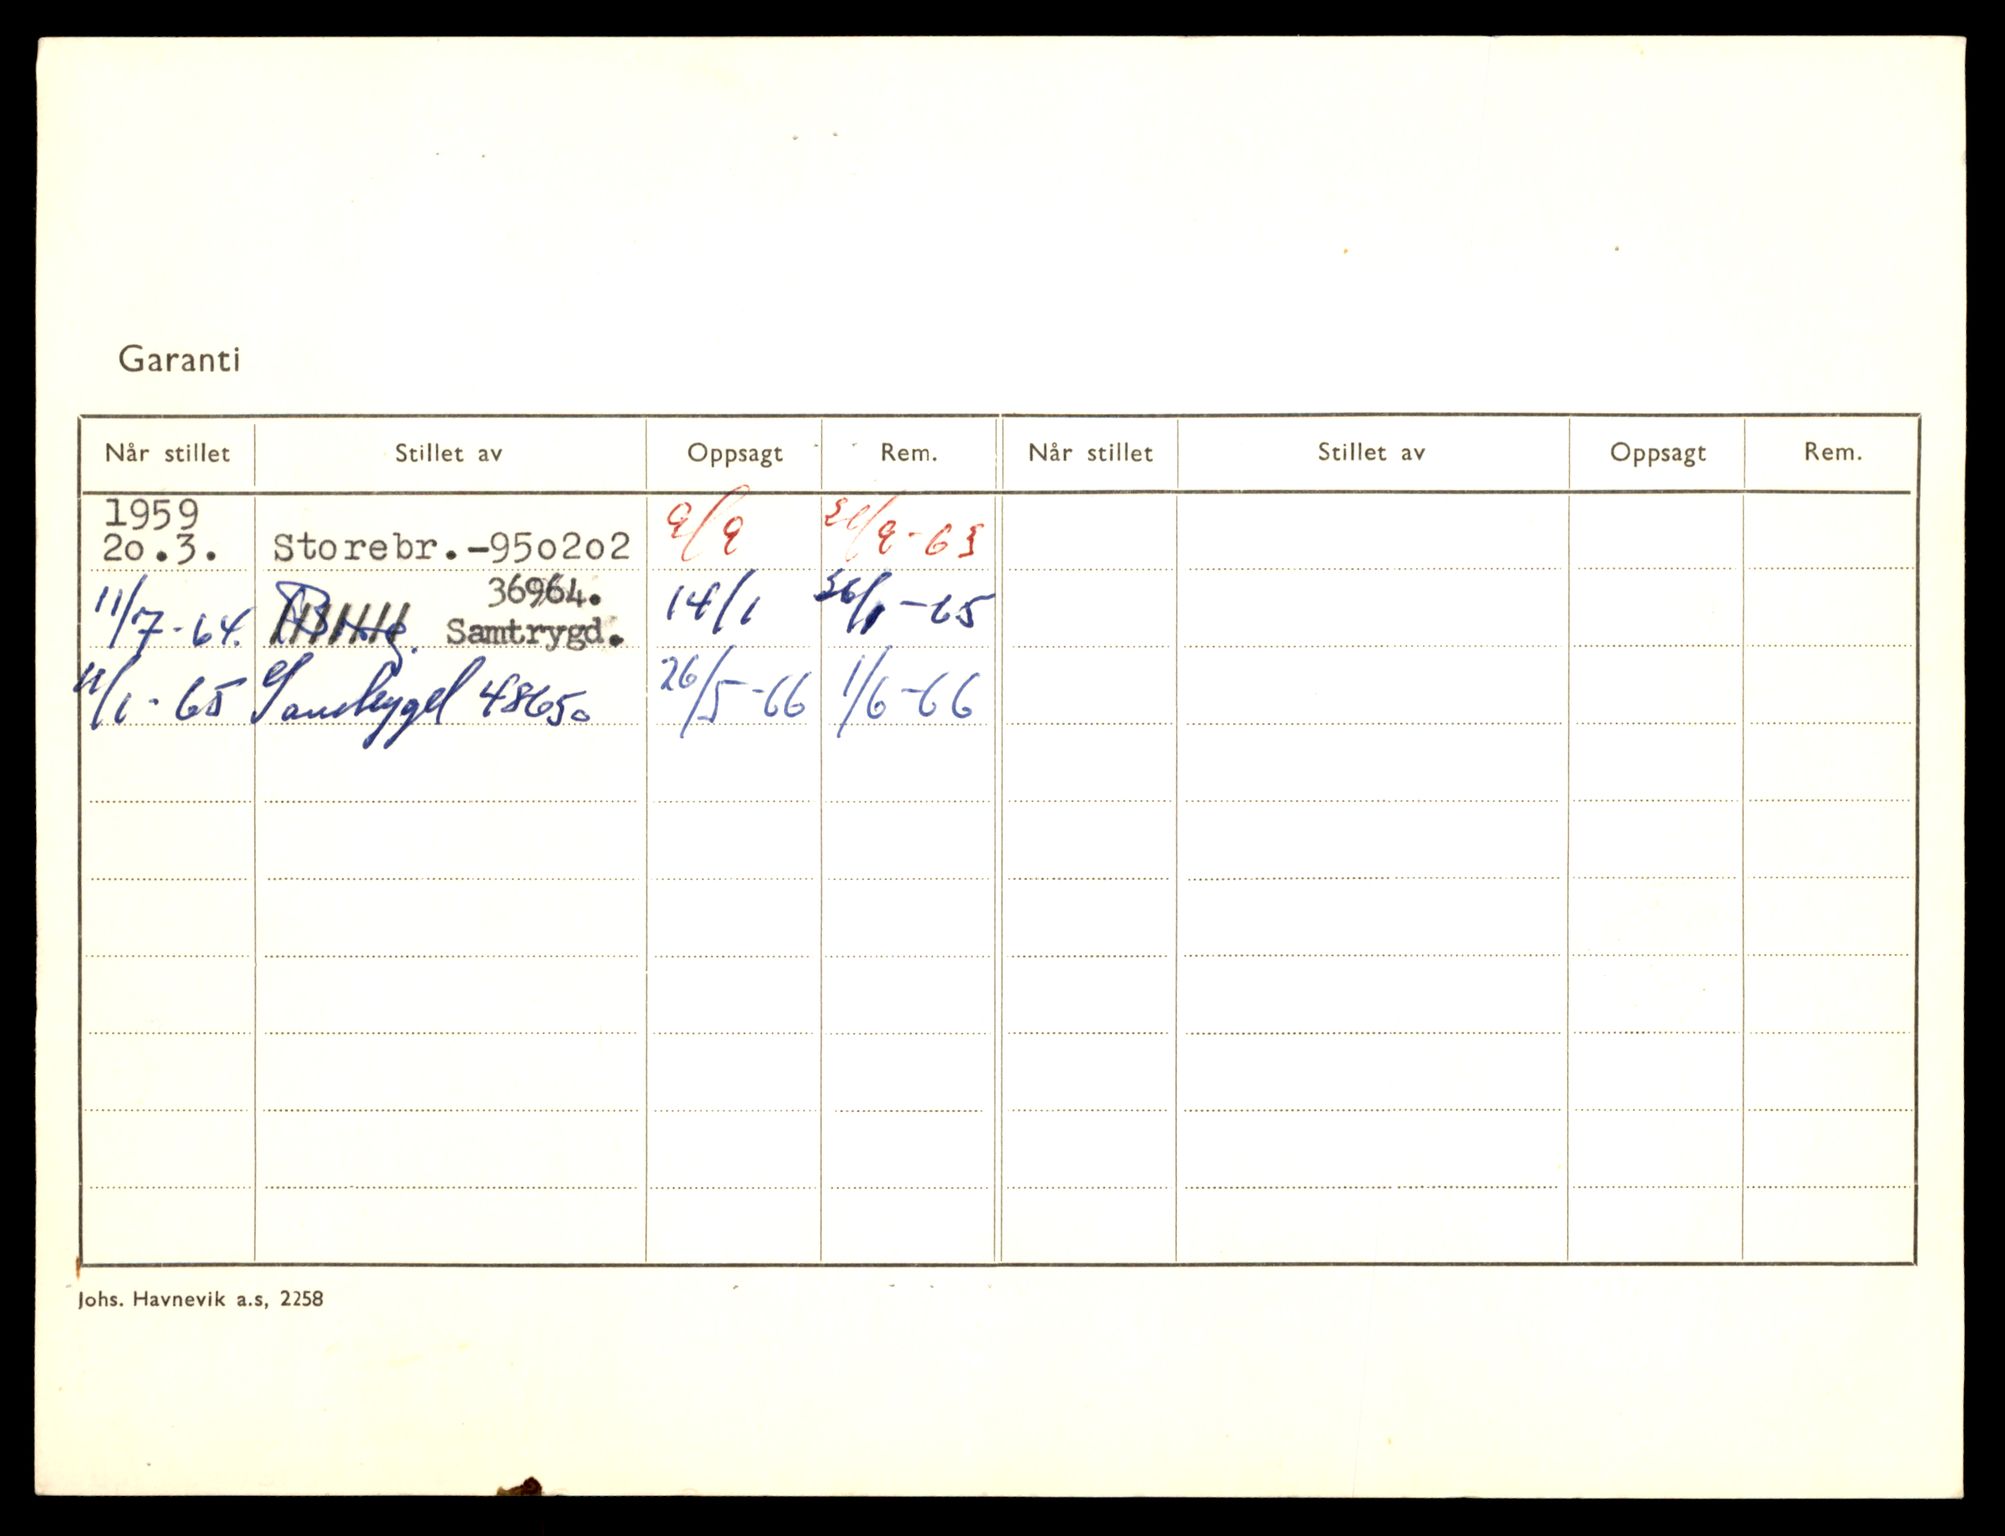 Garanti
Når stillet Stillet av Oppsagt Rem. Når stillet Stillet av Oppsagt Rem.
1959
20.3. Storebr.-950202 9/9 /9-63
36964.
11/7-64. Samtrygd. 14/1 -65
11/1-65 Samtrygd 48650 26/5-66 1/6-66
Johs. Havnevik a.s, 2258